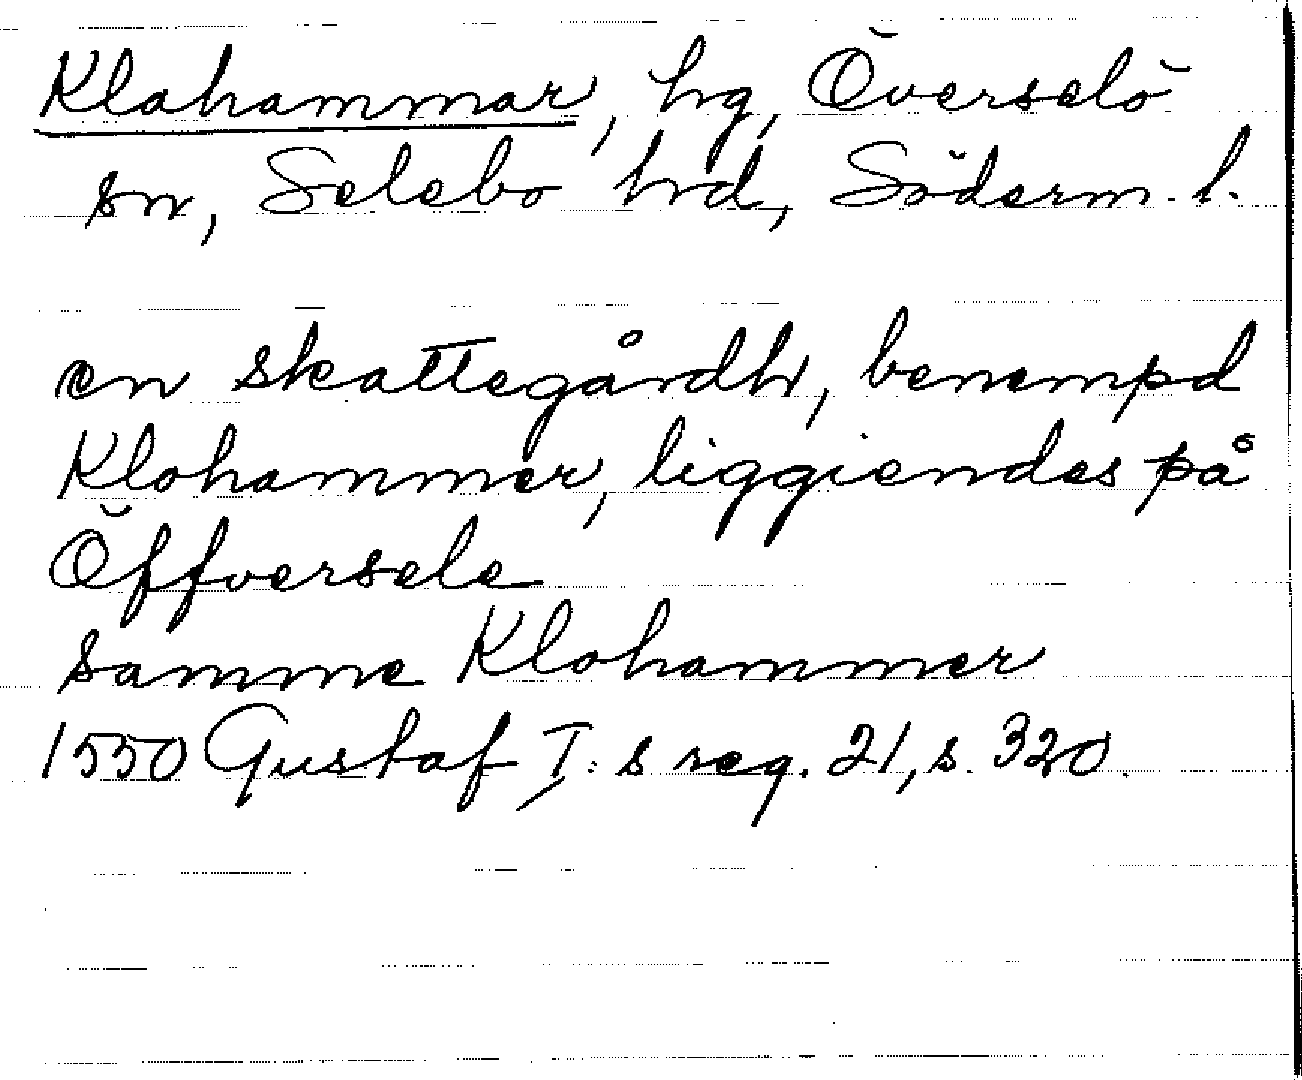 Klahammar, hg, Överselö
sn, Selebo hrd, Söderm. l.
en skattegårdh, benempd
Klohammer, liggiendes på
Öffversele
samme Klohammer
1550 Gustaf I: s reg. 21, s. 320.